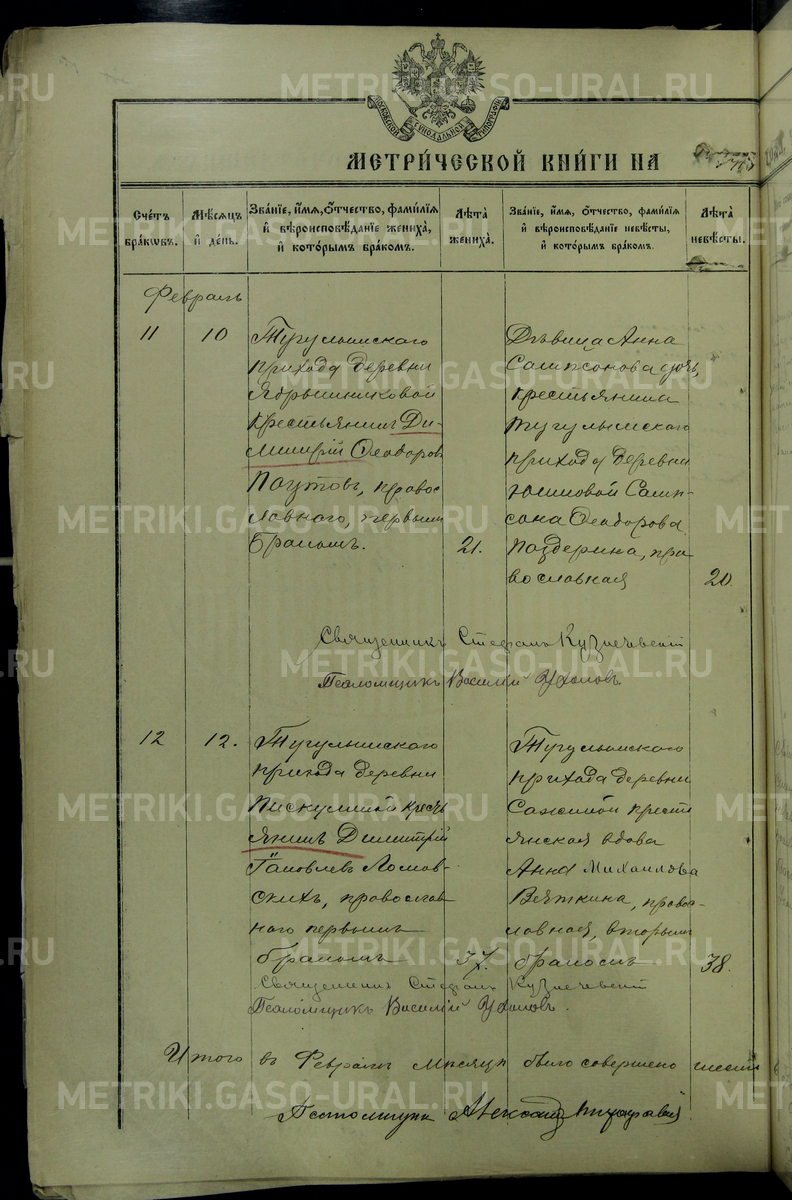 МОСКОВСКОЙ СѴНОДАЛЬНОЙ ТИПОГРАФІИ
МЕТРИ́ЧЕСКОЙ КНИ́ГИ НА
Сче́тъ бра́ковъ.
Мѣ́сяцъ и҆ де́нь.
Зва́нїе, и҆́мя, ѻ҆́тчество, фами́лїя и҆ вѣроисповѣ́данїе жениха̀, и҆ кото́рымъ бра́комъ.
Лѣ́та жениха̀.
Зва́нїе, и҆́мя, ѻ҆́тчество, фами́лїя и҆ вѣроисповѣ́данїе невѣ́сты, и҆ кото́рымъ бра́комъ.
Лѣ́та невѣ́сты.
Февраль
11
10
Тугулымскаго
прихода деревни
Ядрышниковой
крестьянинъ Ди-
митрій Ѳеодоровъ
Паутовъ, правос
лавнаго, первымъ
бракомъ.
21.
Дѣвица Анна
Сампсонова дочь,
крестьянина
Тугулымскаго
прихода деревни
Юшковой Самп-
сона Ѳеодорова
Поздерина, пра
вославная
20.
Священникъ Стефанъ Кузнечевскій
Псаломщикъ Василій Ухаловъ
12
12.
Тугулымскаго
прихода деревни
Пискулиной кресть
янинъ Димитрій
Іаковлевъ Ломов-
скихъ, православ
наго первымъ
бракомъ
37.
Тугулымскаго
прихода деревни
Сажиной кресть
янская вдова
Анна Михаилова
Вяткина, право-
лавная, вторымъ
бракомъ
38.
Священникъ Стефанъ Кузнечевскій
Псаломщикъ Василій Ухаловъ.
Итого въ Февралѣ мѣсяцѣ было совершено
Псаломщикъ Александръ
METRIKI.GASO-URAL.RU